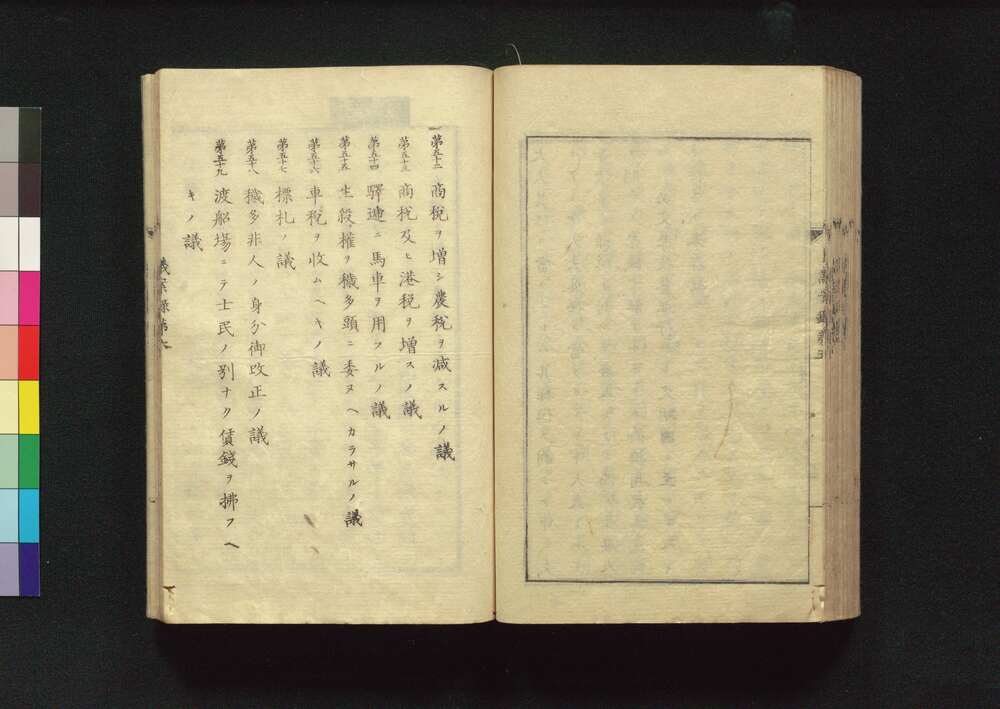 第五十二 商税ヲ増シ農税ヲ減スルノ議
第五十三 商税及ヒ港税ヲ増スノ議
第五十四 驛逓ニ馬車ヲ用フルノ議
第五十五 生殺権ヲ穢多頭ニ委ヌヘカラサルノ議
第五十六 車税ヲ收ムヘキノ議
第五十七 標札ノ議
第五十八 穢多非人ノ身分御改正ノ議
第五十九 渡船場ニテ士民ノ別ナク賃錢ヲ拂フヘ
キノ議
議案録第六